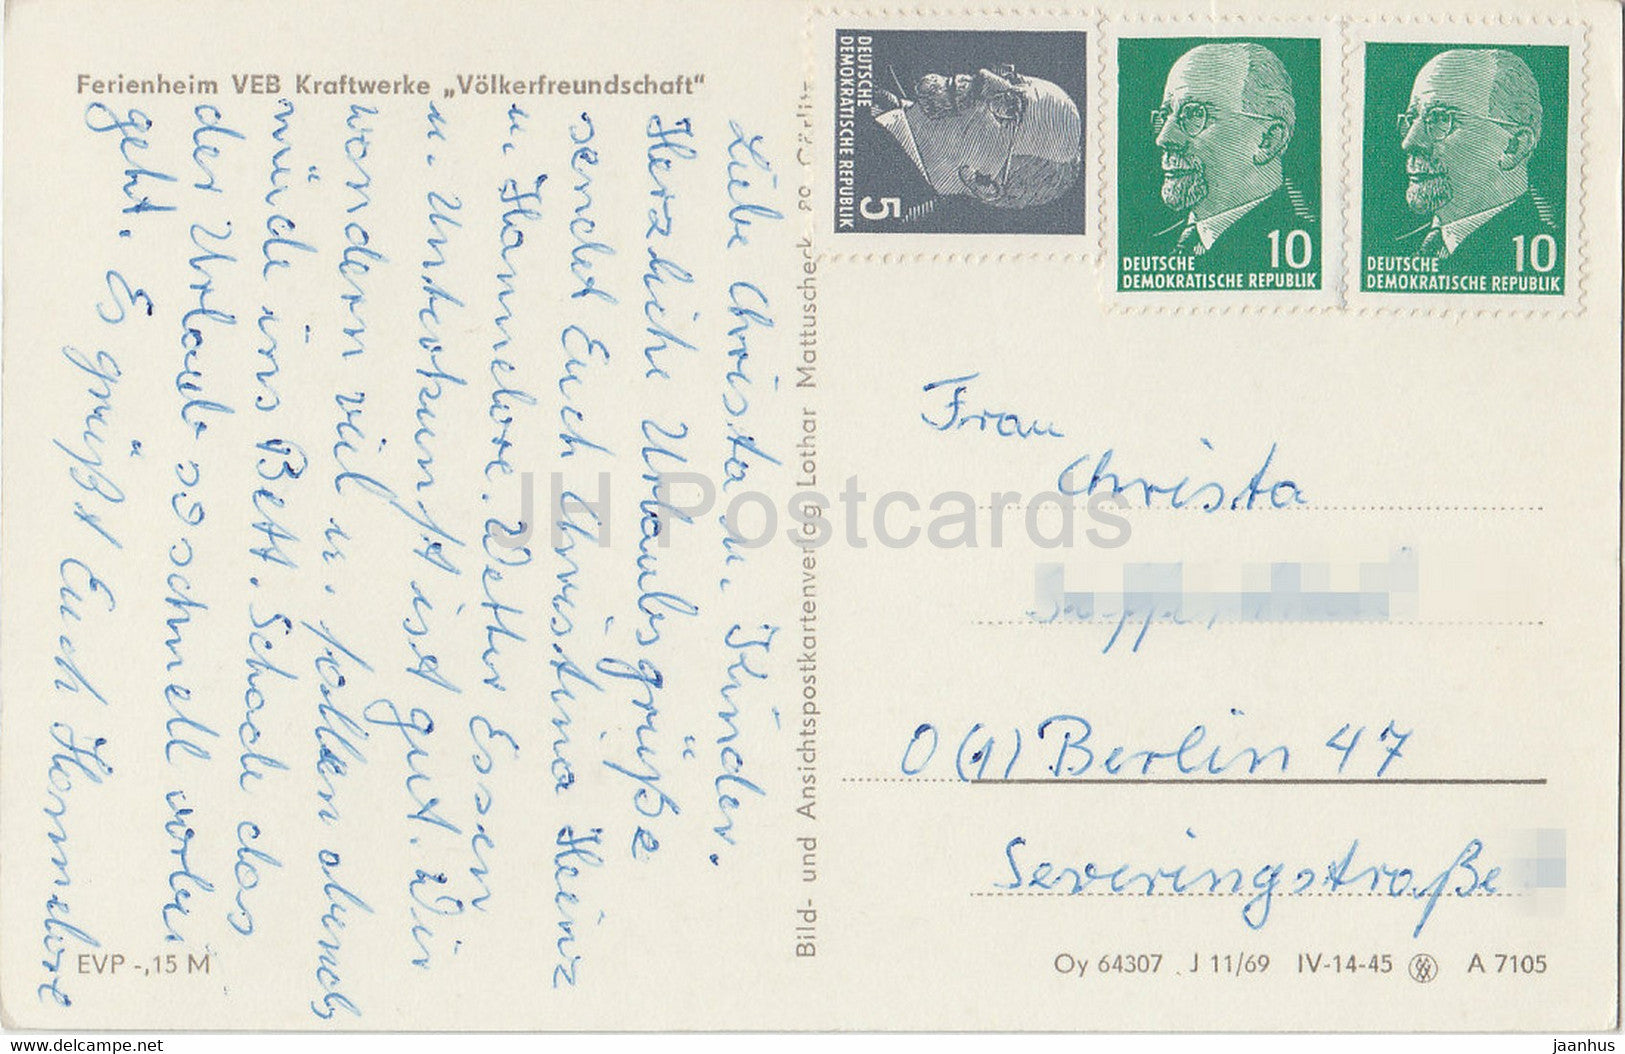 Ferienheim VEB Kraftwerke „Völkerfreundschaft"
Liebe Christa u. Kinder.
Herzliche Urlaubsgrüße
sendet Euch Christina Heinz
u. Hannelore. Wetter Essen
u. Unterkunft ist gut. Wir
wandern viel u. fallen abends
müde ins Bett. Schade das
der Urlaub so schnell vorbei
geht. Es grüßt Euch Hannelore
EVP -,15 M
Bild- und Ansichtspostkartenverlag Lothar Mattuscheck 89 Görlitz
DEUTSCHE
DEMOKRATISCHE REPUBLIK
5
10
DEUTSCHE
DEMOKRATISCHE REPUBLIK
10
DEUTSCHE
DEMOKRATISCHE REPUBLIK
Frau
Christa
0 (1) Berlin 47
Severingstraße
Oy 64307 J 11/69 IV-14-45 A 7105
JH Postcards
delcampe.net
jaanhus